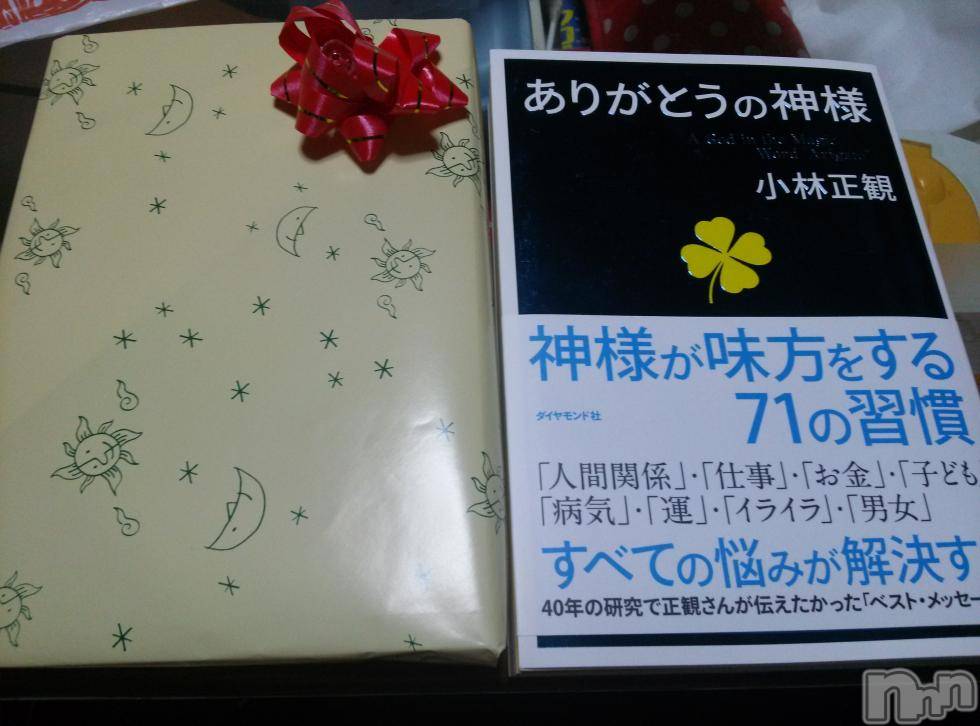 ありがとうの神様
A God in the Magic
Word "Arigato"
小林正観
神様が味方をする
71の習慣
ダイヤモンド社
「人間関係」・「仕事」・「お金」・「子ども
「病気」・「運」・「イライラ」・「男女」
すべての悩みが解決す
40年の研究で正観さんが伝えたかった「ベスト・メッセー
nnn